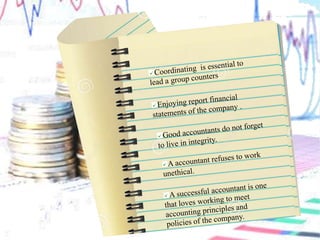 ✓Coordinating is essential to
lead a group counters
✓Enjoying report financial
statements of the company .
✓Good accountants do not forget
to live in integrity.
✓A accountant refuses to work
unethical.
✓A successful accountant is one
that loves working to meet
accounting principles and
policies of the company.